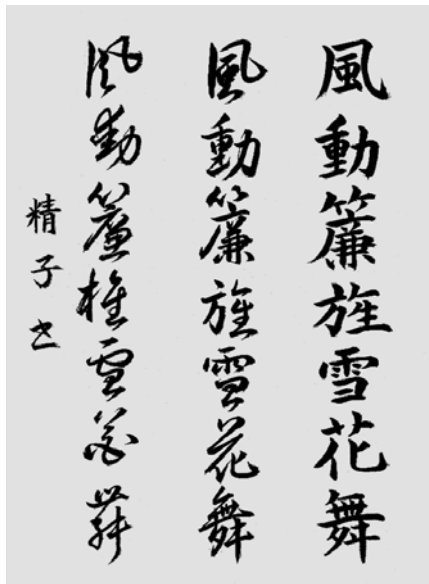 風動簾旌雪花舞
風動簾旌雪花舞
風動簾旌雪花舞
精子書